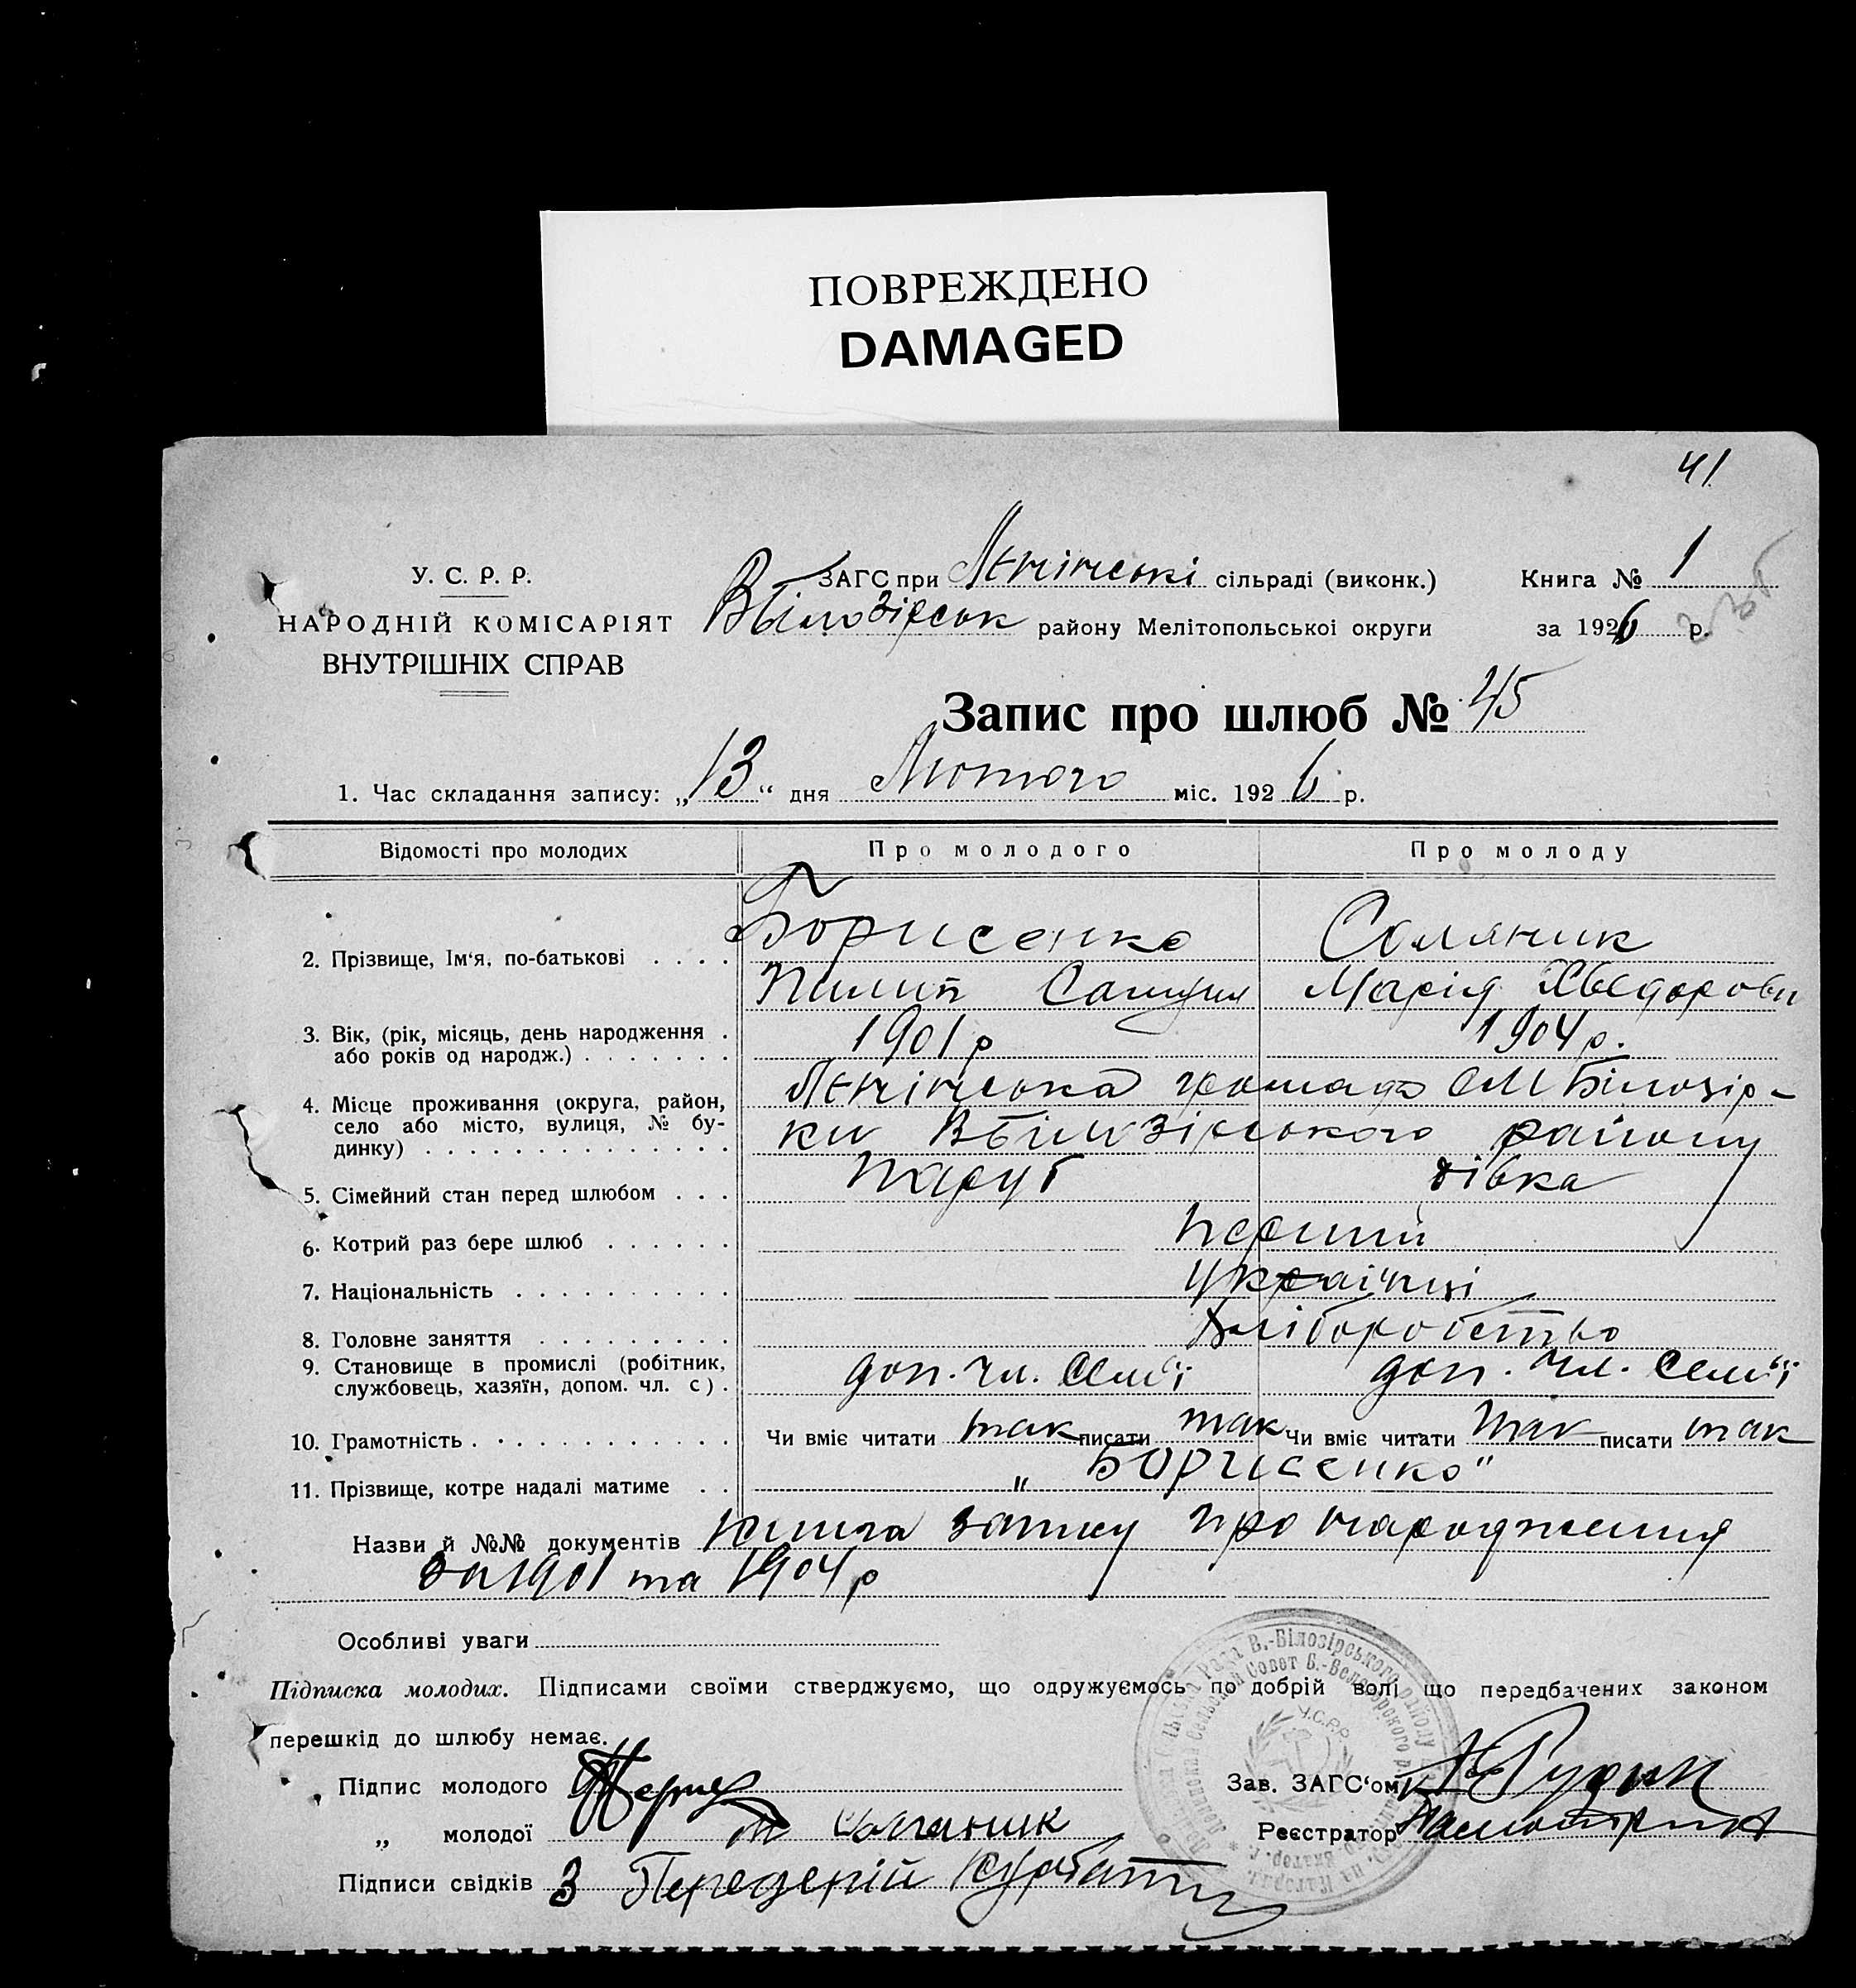 ПОВРЕЖДЕНО
DAMAGED
41
У. С. Р. Р.
НАРОДНІЙ КОМІСАРІЯТ
ВНУТРІШНІХ СПРАВ
ЗАГС при Ленінські сільраді (виконк.)
ВБілозірськ району Мелітопольськоі округи
Книга № 1
за 1926 р.
Запис про шлюб № 45
1. Час складання запису: „13“ дня Лютого міс. 1926 р.
Відомості про молодих Про молодого Про молоду
2. Прізвище, Ім‘я, по-батькові . . . . Борисенко Соляник
Пилип Самуил Марія Хведоровн
3. Вік, (рік, місяць, день народження . або років од народж.) . . . . . . . 1901 р 1904 р.
4. Місце проживання (округа, район, Ленінська громада см Білозір-
село або місто, вулиця, № бу- ки ВБілозірського району
динку) . . . . . . . . . . . . . .
5. Сімейний стан перед шлюбом . . . Паруб дівка
6. Котрий раз бере шлюб . . . . . . перший
7. Національність . . . . . . . . . . українці
8. Головне заняття . . . . . . . . . Хліборобство
9. Становище в промислі (робітник, службовець, хазяїн, допом. чл. с.) . доп. чл. семʼї доп. чл. семʼї
10. Грамотність . . . . . . . . . . . . Чи вміє читати так писати так Чи вміє читати так писати так
11. Прізвище, котре надалі матиме . . „ Борисенко"
Назви й №№ документів книга запису про народження
за 1901 та 1904 р
Особливі уваги
Підписка молодих. Підписами своїми стверджуємо, що одружуємось по добрій волі що передбачених законом
перешкід до шлюбу немає.
Підпис молодого
„ молодої м Соляник
Підписи свідків 3
Зав. ЗАГС‘ом
Реєстратор
У.С.Р.Р.